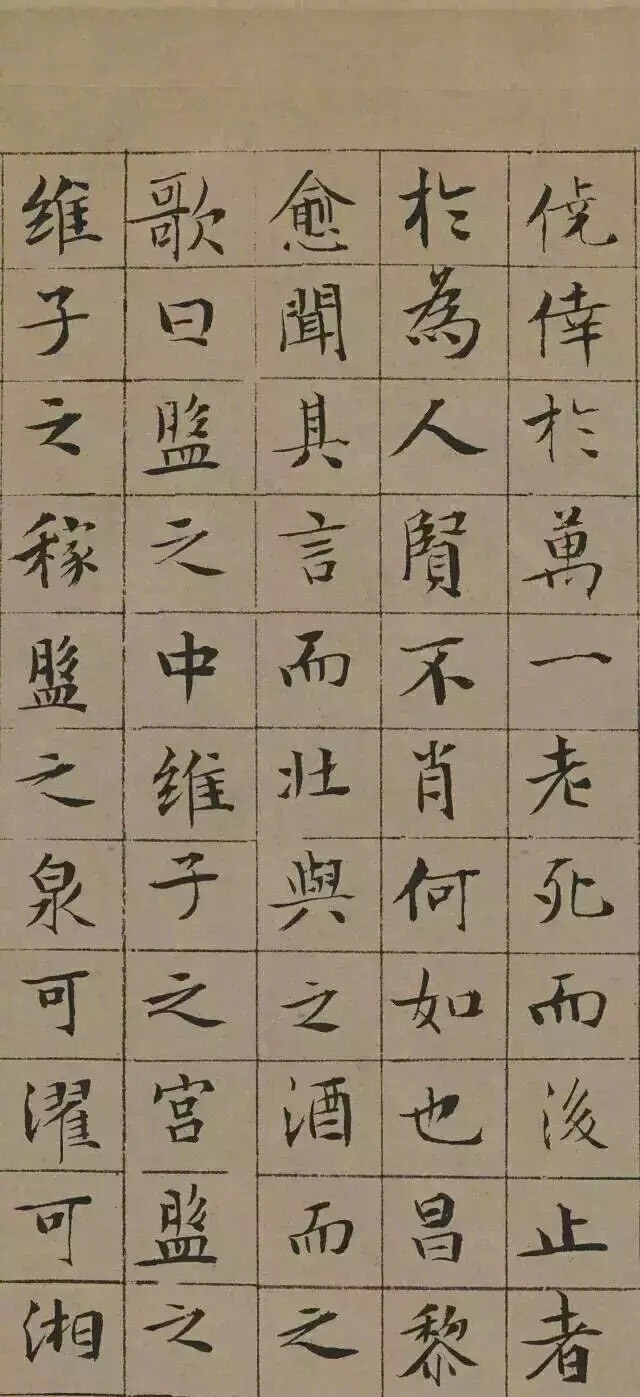 僥倖於萬一老死而後止者
於為人賢不肖何如也昌黎
愈聞其言而壯與之酒而之
歌曰盤之中維子之宮盤之
維子之稼盤之泉可濯可湘